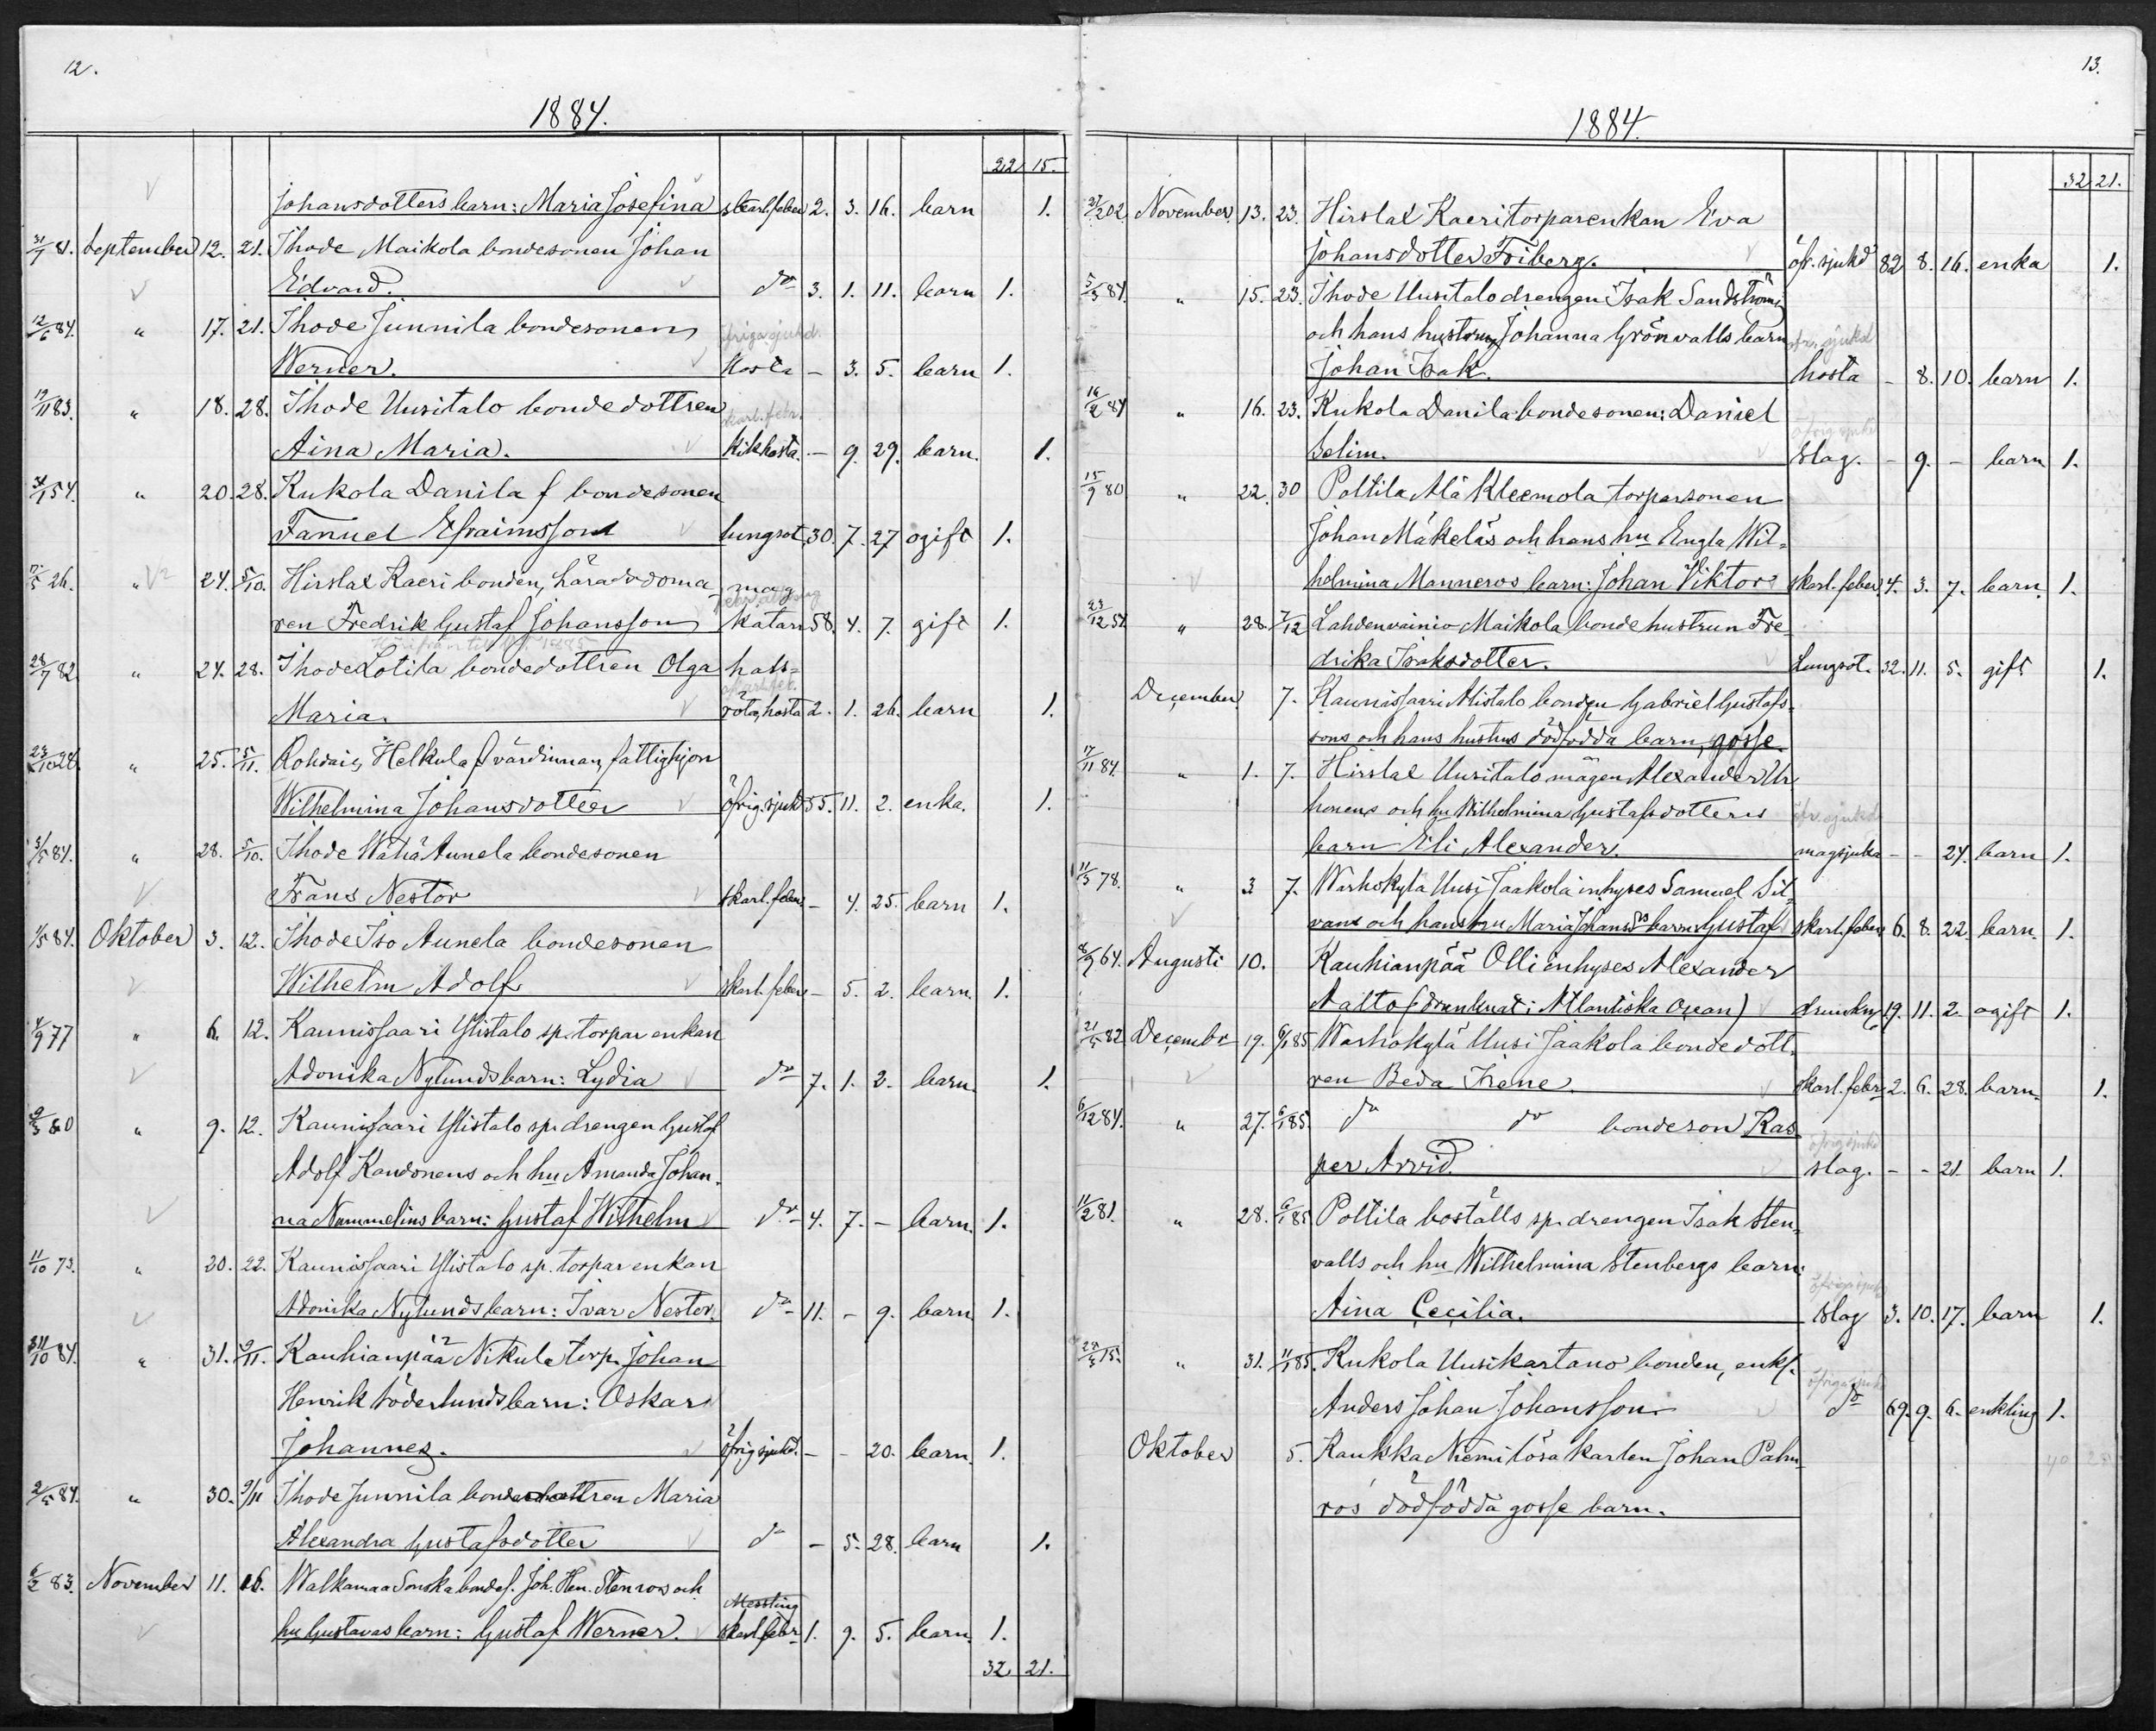 12.
1884.
22. 15.
Johansdotters barn: Maria Josefina skarl.feber 2. 3. 16. barn 1.
31/7 81. September 12. 21. Ihode Maikola bondesonen Johan
Edvard. do 3. 1. 11. barn 1.
12/6 84. " 17. 21. Ihode Junnila bondesonen öfriga sjukd.
Werner. Hosta - 3. 5. barn 1.
19/11 83. " 18. 28. Ihode Uusitalo bondedottren skarl.febr.
Aina Maria. Kikhosta. - 9. 29. barn. 1.
1 54. " 20. 28. Kukola Danila f bondesonen
Fanuel Efraimsson lungsot 30. 7. 27 ogift 1.
17/5 26. " 24. 5/10. Hirslax Kaeri bonden, häradsdoma mag
ren Fredrik Gustaf Johansson katarr 58. 4. 7. gift 1.
28/7 82. " 24. 28. Ihode Lotila bondedottren Olga hals=
Maria. röta, hosta 2. 1. 26. barn 1.
23/10 28. " 25. 5/11. Rohdais, Helkula f värdinnan, fattighjon
Wilhelmina Johansdotter öfrig.sjukd 55. 11. 2. enka. 1.
3/5 84. " 28. 5/10. Ihode Wähä Aunela bondesonen
Frans Nestor skarl.feber - 4. 25. barn 1.
1/5 84. Oktober 3. 12. Ihode Iso Aunela bondesonen
Wilhelm Adolf skarl.feber - 5. 2. barn. 1.
4/9 77 " 6. 12. Kaunissaari Ylistalo sp. torparenkan
Adonika Nylunds barn: Lydia do 7. 1. 2. barn. 1.
9/3 80 " 9. 12. Kaunissaari Ylistalo sp. drengen Gustaf
Adolf Kandonens och hu Amanda Johan-
na Nummelins barn: Gustaf Wilhelm do 4. 7. - barn. 1.
11/10 73. " 20. 22. Kaunissaari Ylistalo sp. torparenkan
Adonika Nylunds barn: Ivar Nestor. do 11. - 9. barn 1.
11/10 84. " 31. 9/11. Kauhianpää Nikula torp. Johan
Henrik Söderlunds barn: Oskar
Johannes. öfrig sjukd. - - 20. barn. 1.
2/5 84. " 30. 9/11 Ihode Junnila bondedottren Maria
Alexandra Gustafsdotter do - 5. 28. barn 1.
6/2 83. November 11. 16. Walkamaa Sonska bondes. Joh. Hen. Stenros och Messling
hu Gustavas barn: Gustaf Werner. skarl.febr 1. 9. 5. barn. 1.
32 21.
13.
1884.
32 21.
202 November 13. 23. Hirslax Kaeri torparenkan Eva
Johansdotter Friberg. öfr. sjukd 82 8. 16. enka 1.
5/3 84. " 15. 23. Ihode Uusitalo drengen Isak Sandströms
och hans hustrus Johanna Grönvalls barn öfr. sjukd
Johan Isak. hosta - 8. 10. barn 1.
16/2 84 " 16. 23. Kukola Danila bondesonen: Daniel öfrig sjukd
Selim. Slag. - 9. - barn 1.
15/9 80 " 22. 30 Poltila Alä Kleemola torparsonen
Johan Mäkeläs och hans hu Engla Wil=
helmina Manneros barn: Johan Viktor skarl. feber 4. 3. 7. barn. 1.
23/12 51. " 28. 7/12 Lahdenvainio Maikola bondehustrun Fre=
drika Isaksdotter. Lungsot. 32. 11. 5. gift 1.
December 7. Kaunissaari Alistalo bonden Gabriel Gustafs-
sons och hans hustrus dödfödda barn, gosse.
17/11 84. " 1. 7. Hirslax Uusitalo mågen Alexander Ur
honens och hu Wilhelmina Gustafsdotters öfr. sjukd
barn Eli Alexander. magsjuka - - 24. barn 1.
11/3 78. " 3 7. Warhokylä Uusi Jaakola inhyses Samuel Sil
vans och hans hu Maria Johansds barn Gustaf skarl.feber 6. 8. 22. barn. 1.
8/9 64. Augusti 10. Kauhianpää Olli inhyses Alexander
Aalto (drunknat i Atlantiska Ocean) drunkn 19. 11. 2. ogift 1.
21/5 82 December 19. 6/1 85 Warhokylä Uusi Jaakola bondedott-
ren Beda Irene. skarl. febr 2. 6. 28. barn. 1.
6/12 84. " 27. 6/1 85. do do bondeson Kas- öfrig sjukd
per Arvid. slag. - - 21. barn 1.
11/2 81. " 28. 6/1 85 Poltila boställs sp. drengen Isak Sten-
valls och hu Wilhelmina Stenbergs barn: öfriga sjukd
Aina Cecilia. Slag 3. 10. 17. barn 1.
15. " 31. 11/1 85. Kukola Uusikartano bonden, enkl. öfriga sjukd
Anders Johan Johansson do 69. 9. 6. enkling 1.
Oktober 5. Raukka Niemi lösa karlen Johan Palm-
ros dödfödda gosse barn.